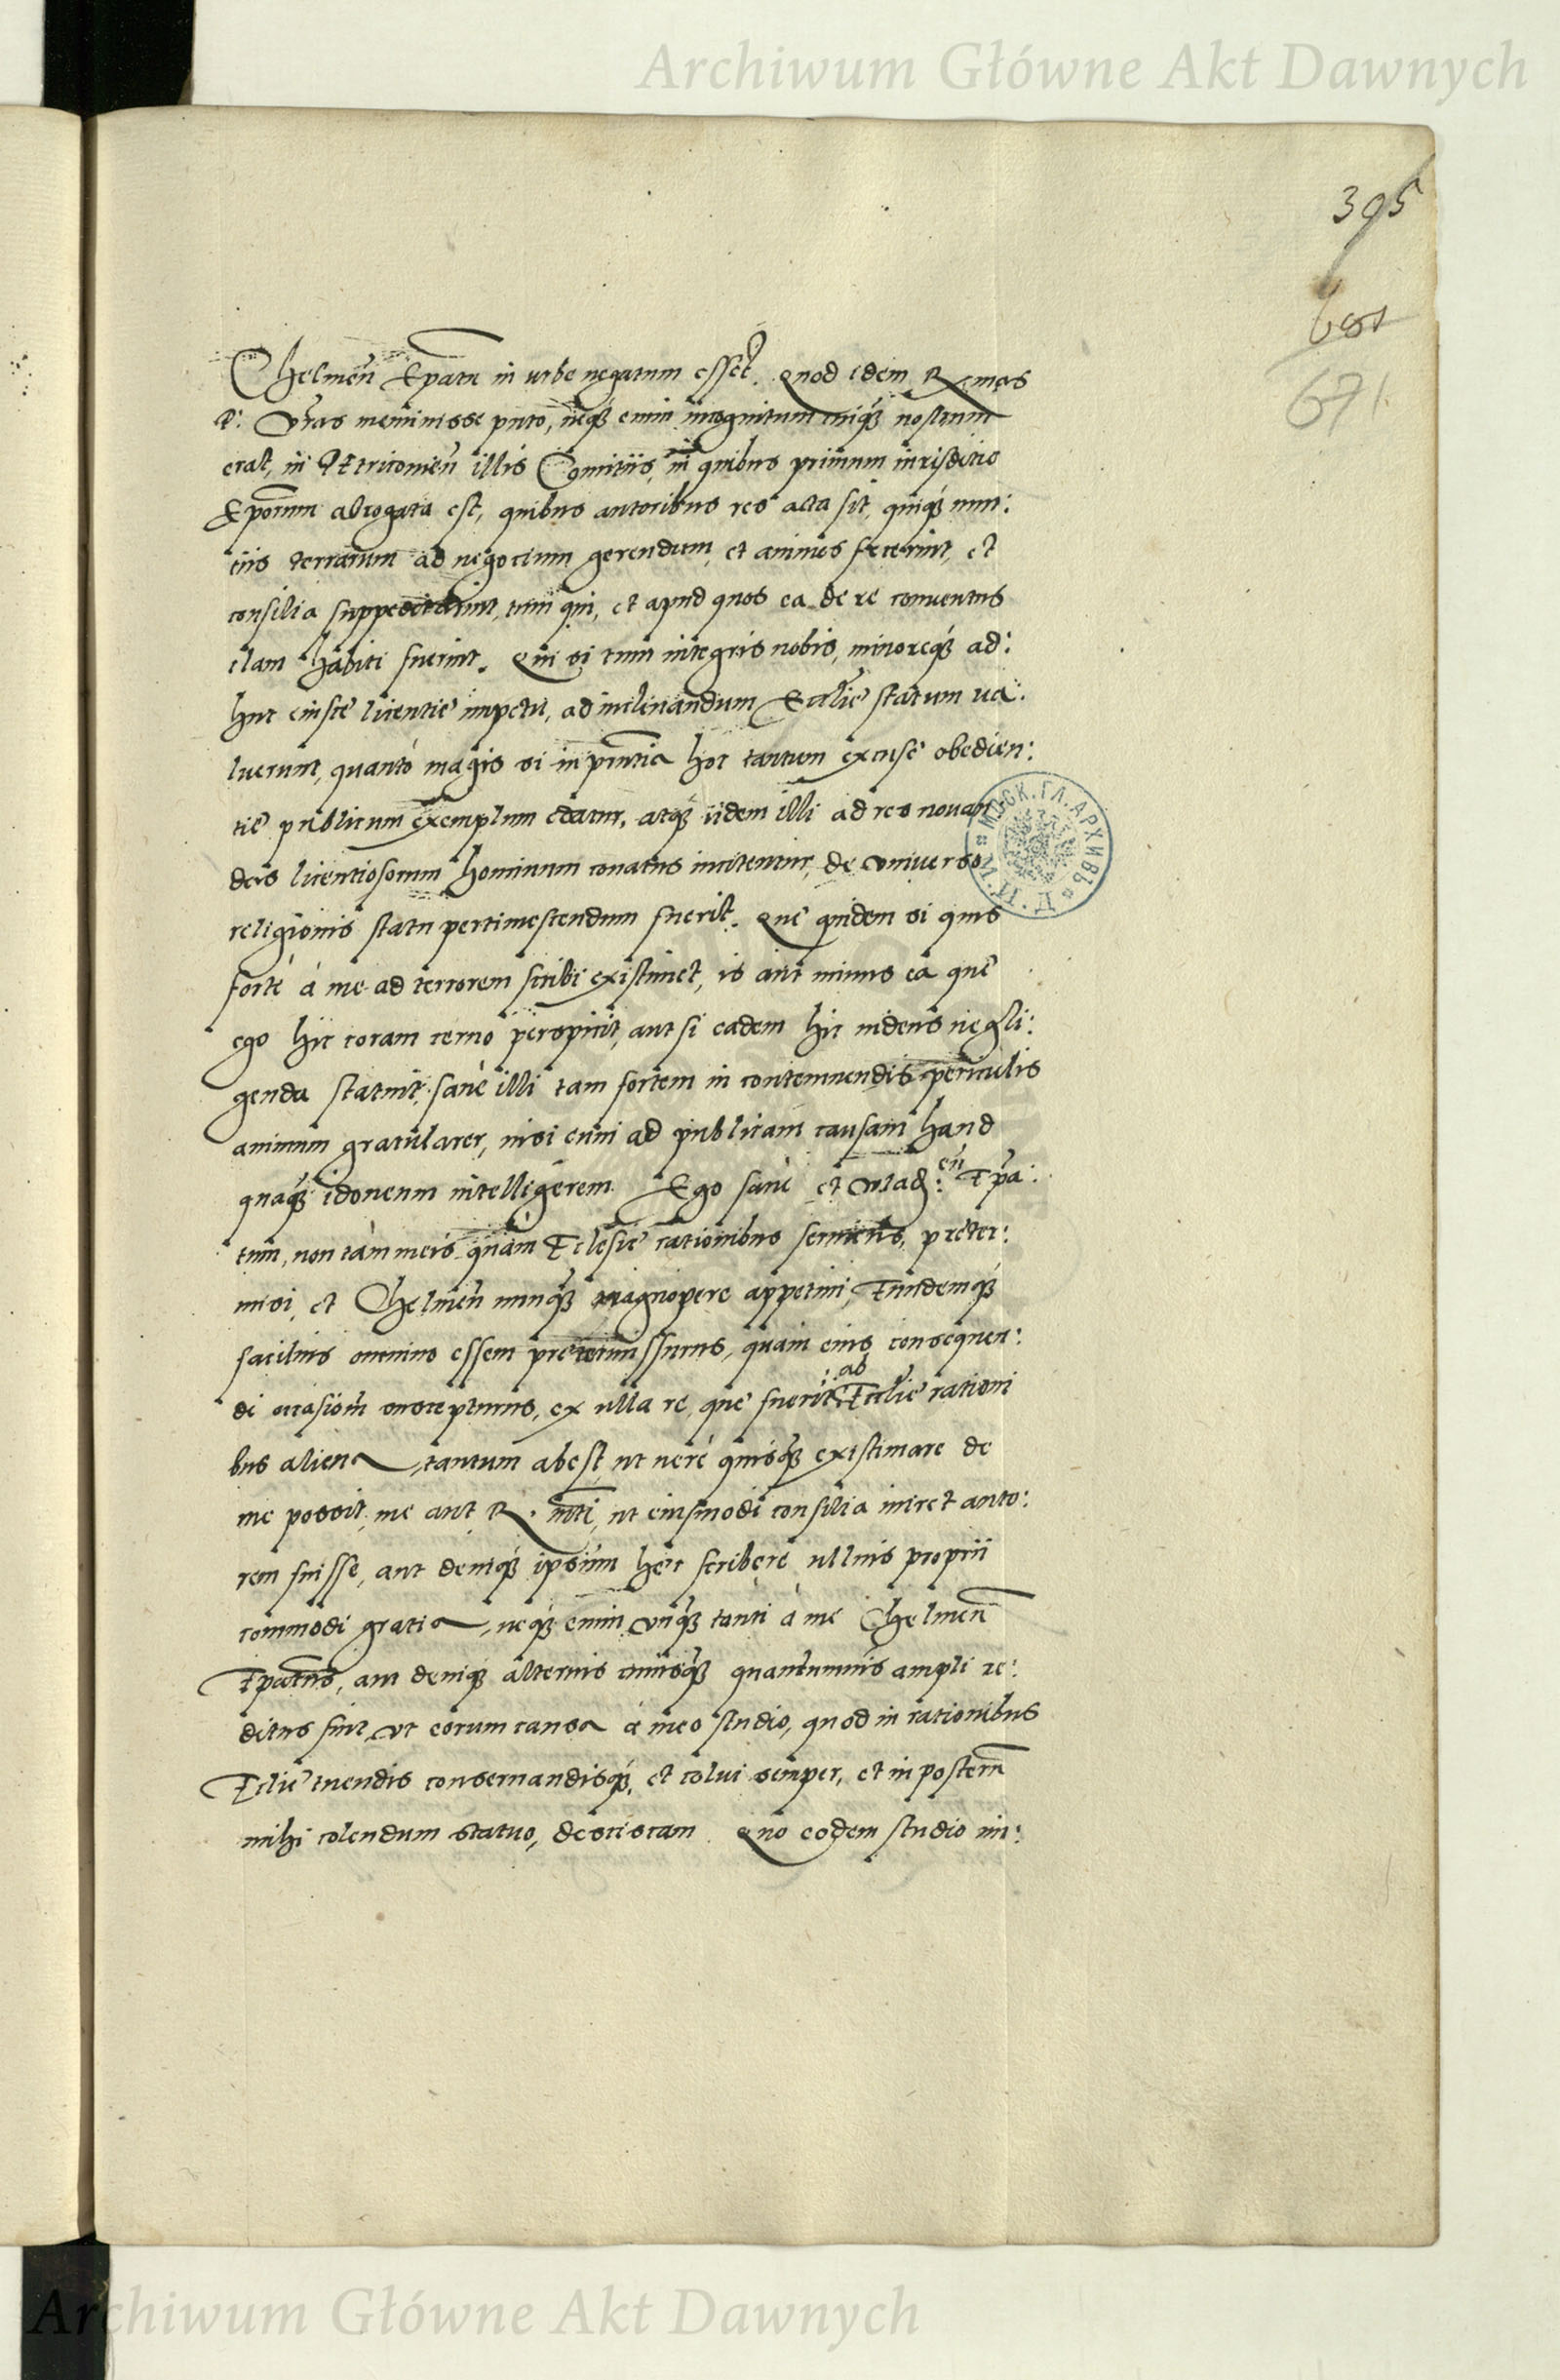 Archiwum Główne Akt Dawnych
395
671.
Chelmeñ Epatu in urbe negatum esset. Quod idem R. mas
D: Vras meminisse puto, neq̃ enim incognitum cuiq̃ nostrum
erat, in Petricouieñ illis Comitiis, in quibus primum iurisditio
Eporum abrogata est, quibus autoribus res acta sit, quiq̃ nun:
ciis terrarum ad negocium gerendum, et animos fecerint, et
consilia suppeditarint, tum qui, et apud quos ea de re conuentus
clam habiti fuerint. Qui si tum integris nobis, minoreq̃ ad:
huc eiusce licentie impetu, ad inclinandum Ecclie statum ua:
luerunt, quanto magis si in pñtia hoc tantum excuse obedien:
tie publicum exemplum edatur, atq̃ iidem illi ad res nouan
das licentiosorum hominum conatus incitentur, de vniuerso
religionis statu pertimescendum fuerit. Que quidem si quis
forte à me ad terrorem scribi existimet, is aut minus ea que
ego hic coram cerno perspicit, aut si eadem hic uidens negli:
genda statuit, sane illi tam fortem in contemnendis periculis
animum gratularer, nisi eum ad publicam causam haud
quaq̃ idoneum intelligerem. Ego sane et Vlad: eñ Epa:
tum, non tàm meis quàm Eclesie rationibus seruiens, preter:
misi, et Chelmeñ nunq̃ magnopere appetiui, Eundemq̃
facilius omnino essem pretermissurus, quam eius consequen:
di occasioñ suscepturus, ex ulla re, que fuerit ab Ecclie rationi
bus aliena, tantum abest, ut uere quisq̃ existimare de
me possit, me aut R. mti, ut eiusmodi consilia iniret auto:
rem fuisse, aut deniq̃ ipsum hec scribere ullius proprii
commodi gratia, neq̃ enim vnq̃ tanti à me Chelmeñ
Epatus, aut deniq̃ alterius cuiusq̃ quantumuis ampli re:
ditus sint, vt eorum causa à meo studio, quod in rationibus
Eclie tuendis conseruandisq̃, et colui semper, et in posterũ
mihi colendum statuo, desciscam. Quo eodem studio in:
МОСК. ГЛ. АРХИВЪ
Archiwum Główne Akt Dawnych